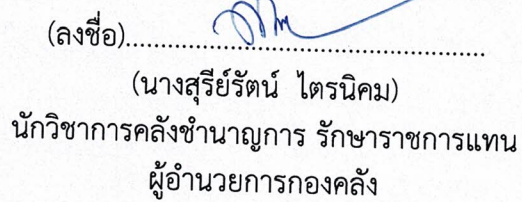 (ลงชื่อ)................................................
(นางสุรีย์รัตน์ ไตรนิคม)
นักวิชาการคลังชำนาญการ รักษาราชการแทน
ผู้อำนวยการกองคลัง